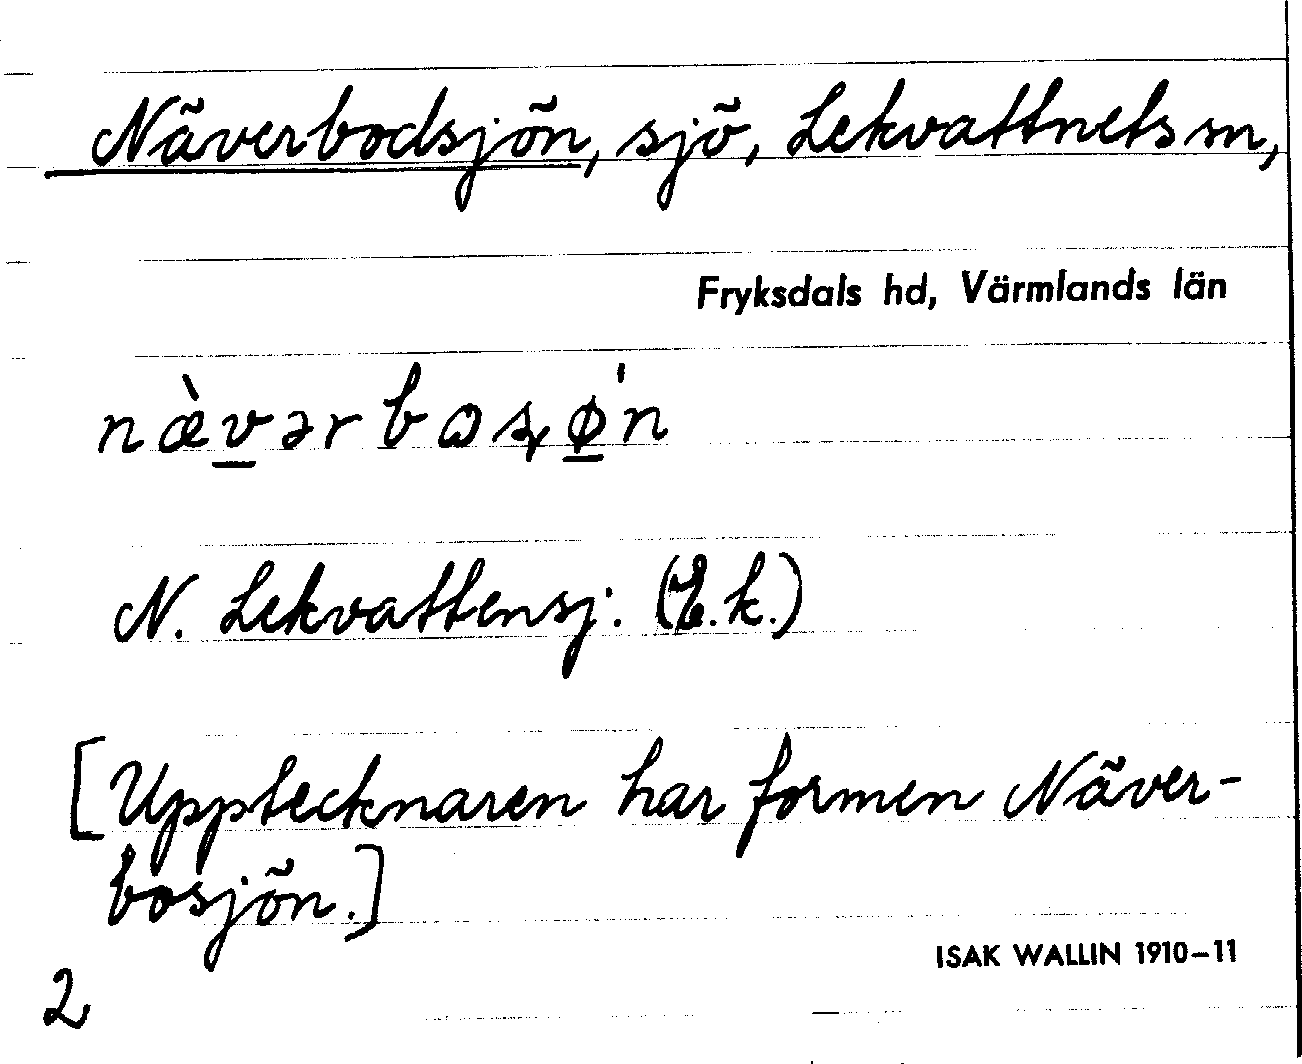 Näverbodsjön, sjö, Lekvattnets sn,
Fryksdals hd, Värmlands län
næ̀vərbɷʂø'n
N. Lekvattensj. (E.k.)
[Upptecknaren har formen Näver-
bosjön.]
ISAK WALLIN 1910–11
2